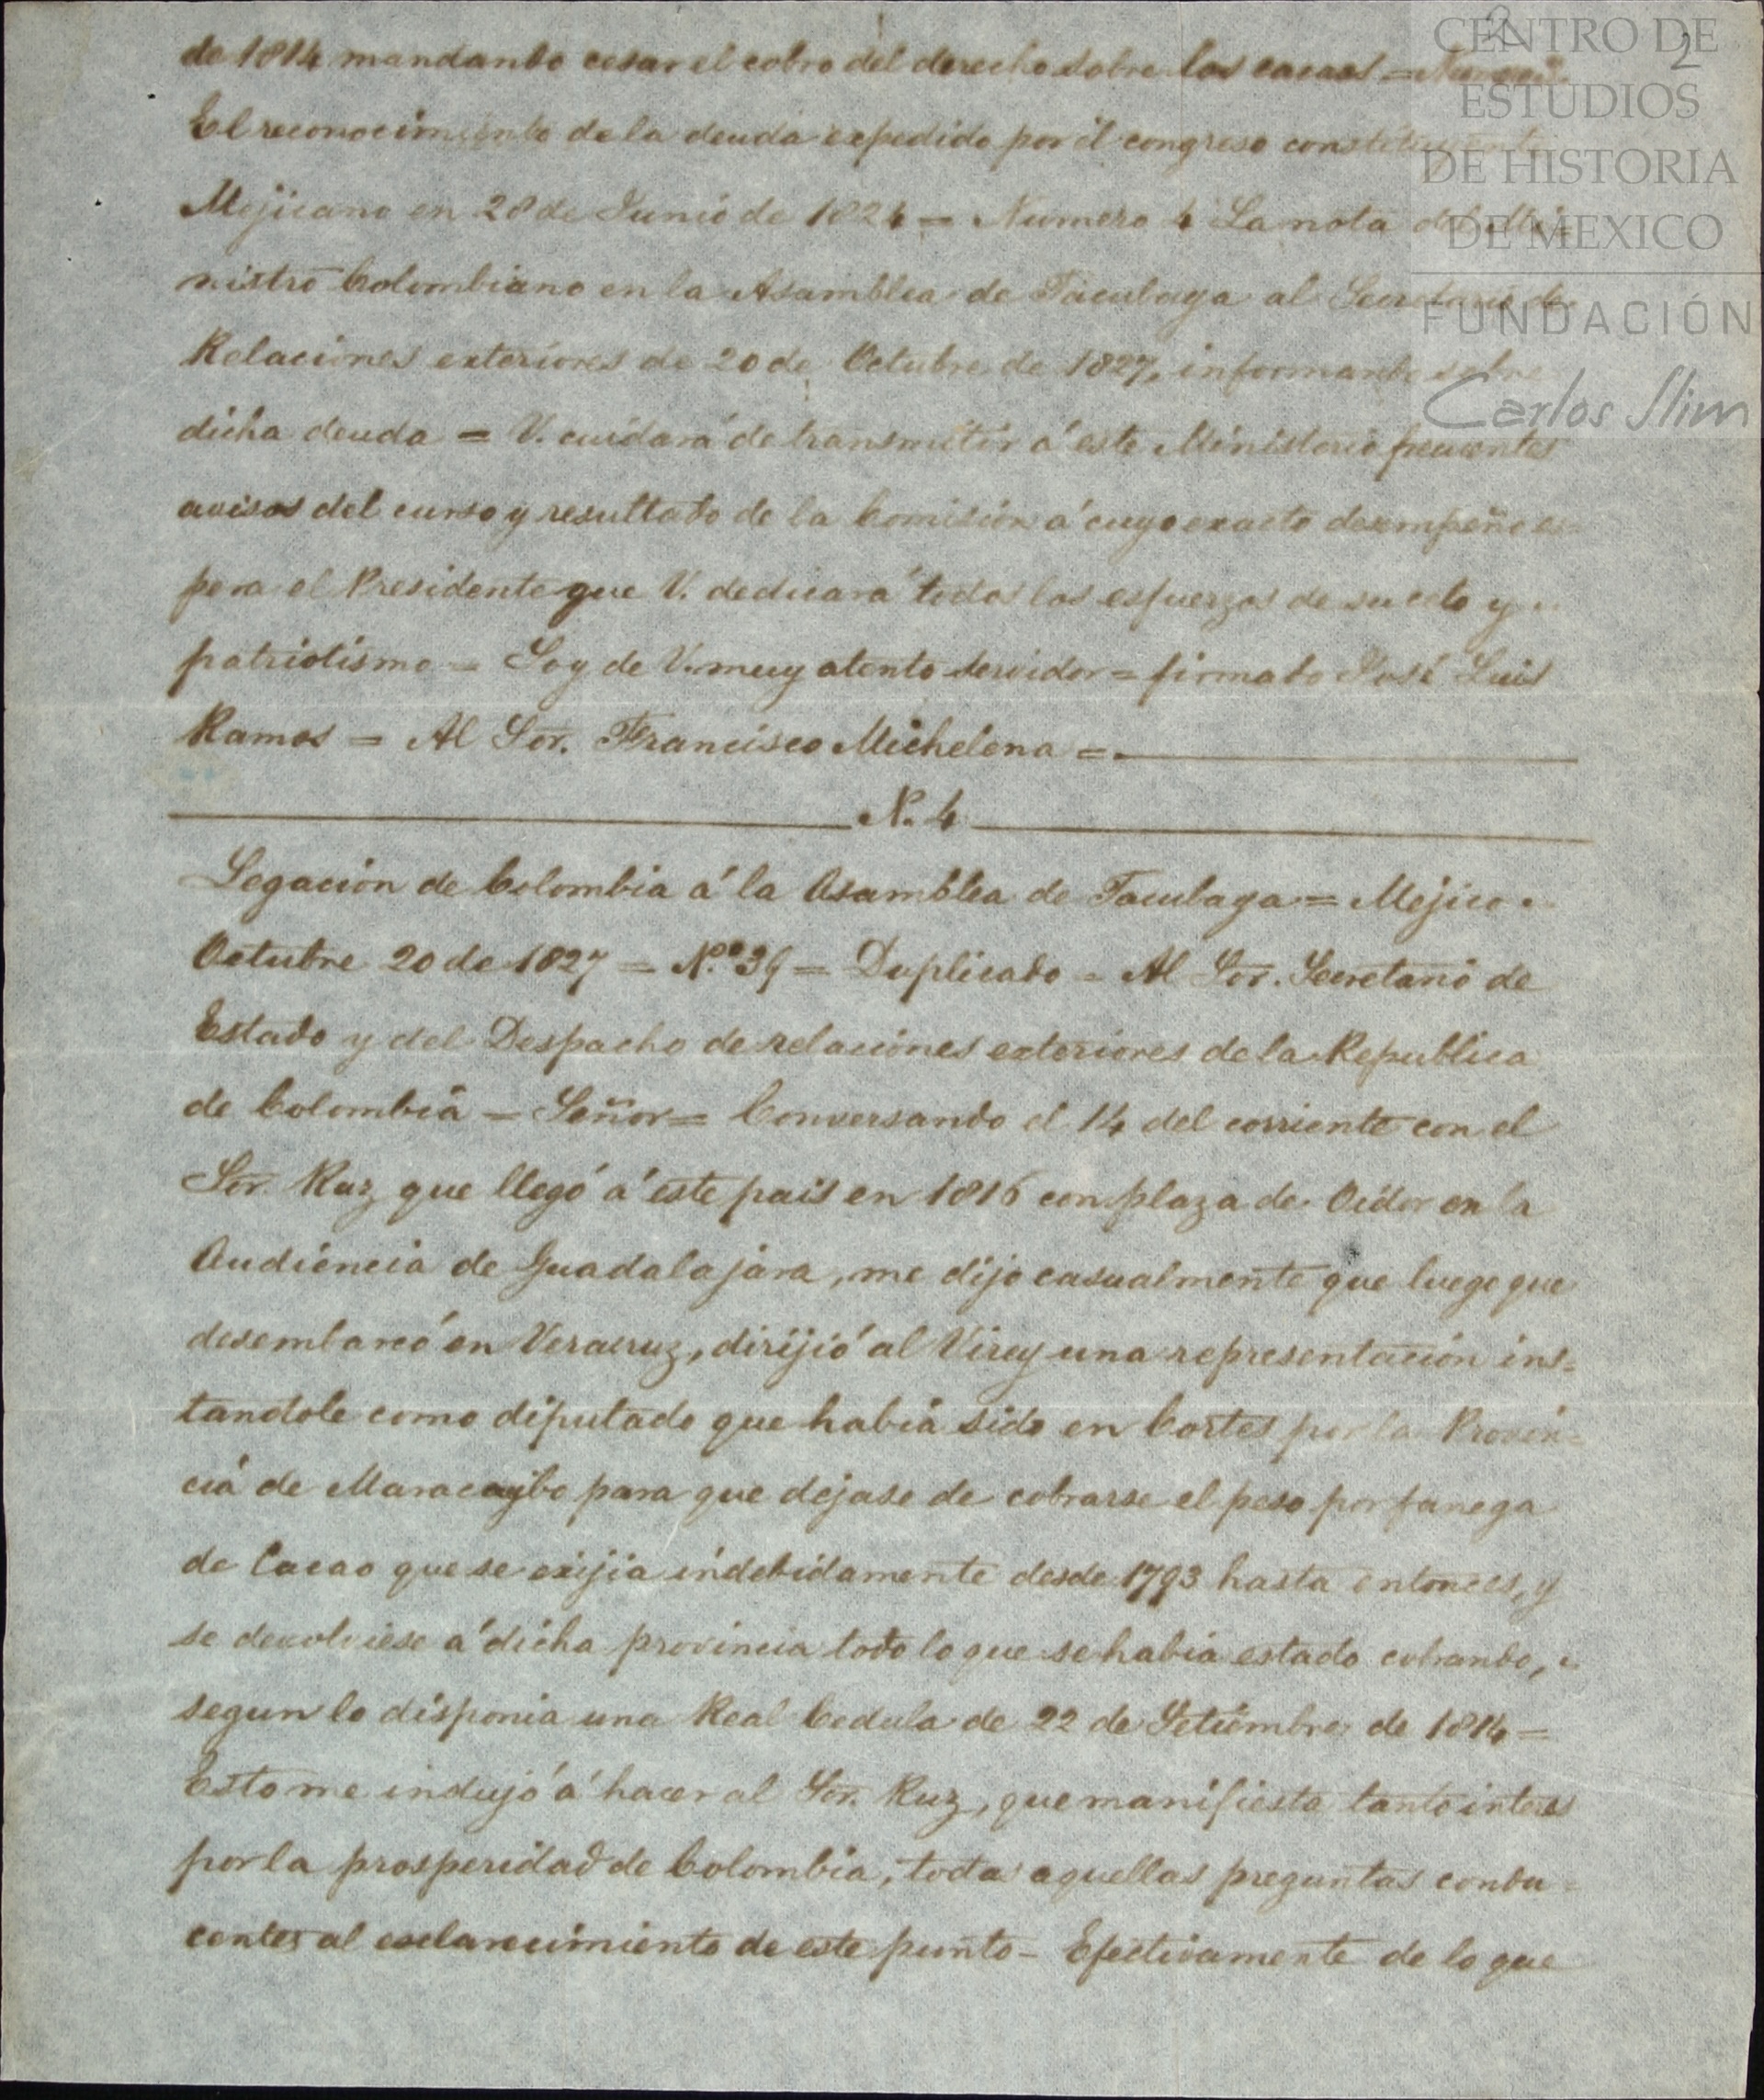 2
CENTRO DE
ESTUDIOS
DE HISTORIA
DE MEXICO
FUNDACIÓN
Carlos Slim
de 1814 mandando cesar el cobro del derecho sobre los cacaos =
El reconocimiento de la deuda expedido por el congreso constituyente
Mejicano en 28 de Junio de 1824 = Numero 4 La nota del Mi-
nistro Colombiano en la Asamblea de Tacubaya al Secretario de
Relaciones exteriores de 20 de Octubre de 1827, informando sobre
dicha deuda = V. cuidará de transmitir á este Ministerio frecuentes
avisos del curso y resultado de la Comision á cuyo exacto desempeño es-
pera el Presidente que V. dedicará todos los esfuerzos de su celo y
patriotismo = Soy de V. muy atento servidor = firmado José Luis
Ramos = Al Sor. Francisco Michelena =
N. 4
Legacion de Colombia á la Asamblea de Tacubaya = Mejico
Octubre 20 de 1827 = N.º 39 = Duplicado = Al Sor. Secretario de
Estado y del Despacho de relaciones exteriores de la Republica
de Colombia = Señor = Conversando el 14 del corriente con el
Sor. Ruz que llegó á este pais en 1816 con plaza de Oidor en la
Audiencia de Guadalajara, me dijo casualmente que luego que
desembarcó en Veracruz, dirijió al Virey una representacion ins=
tandole como diputado que habia sido en Cortes por la Provin=
cia de Maracaybo para que dejase de cobrarse el peso por fanega
de Cacao que se exijia indebidamente desde 1793 hasta entonces, y
se devolviese á dicha provincia todo lo que se habia estado cobrando,
segun lo disponia una Real Cedula de 22 de Setiembre de 1814 =
Esto me indujó á hacer al Sor. Ruz, que manifiesta tanto interes
por la prosperidad de Colombia, todas aquellas preguntas condu=
centes al esclarecimiento de este punto - Efectivamente de lo que